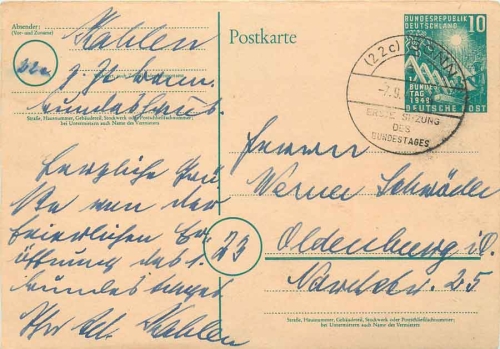 Absender:
(Vor- und Zuname)
Kahlen
z. Zt. Bonn
Bundeshaus
Straße, Hausnummer, Gebäudeteil, Stockwerk oder Postschließfachnummer;
bei Untermietern auch Name des Vermieters
Herzliche Grü
ße von der
feierlichen Er
öffnung des 1.
Bundestages
Ihr
Kahlen
Postkarte
(22c) BONN
-7.9.
ERSTE SITZUNG
DES
BUNDESTAGES
BUNDESREPUBLIK 10
DEUTSCHLAND
BUNDES
TAG
1949
DEUTSCHE POST
Herrn
Werner Schröder
23
Oldenburg i.O.
25
Straße, Hausnummer, Gebäudeteil, Stockwerk oder Postschließfachnummer;
bei Untermietern auch Name des Vermieters